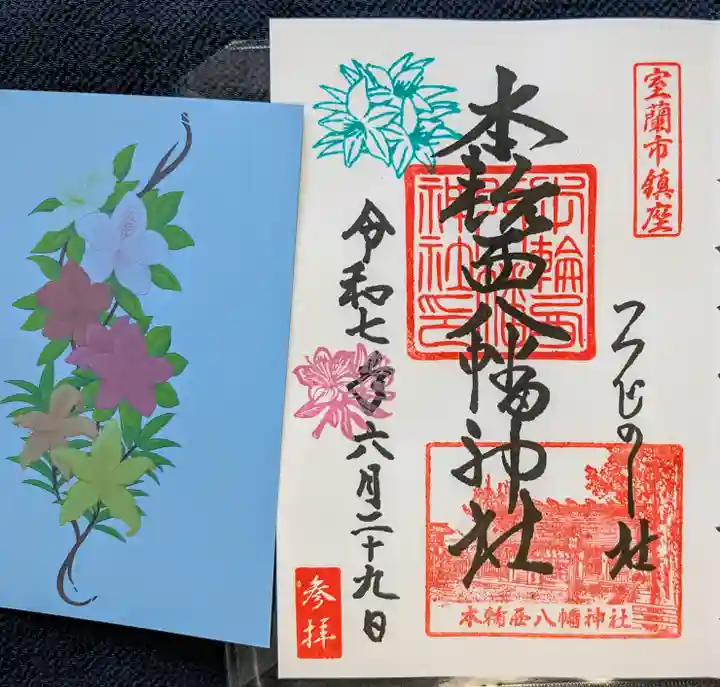 室蘭市鎮座
つつじの社
本輪西八幡神社
本輪西八幡神社
令和七年六月二十九日
参拝